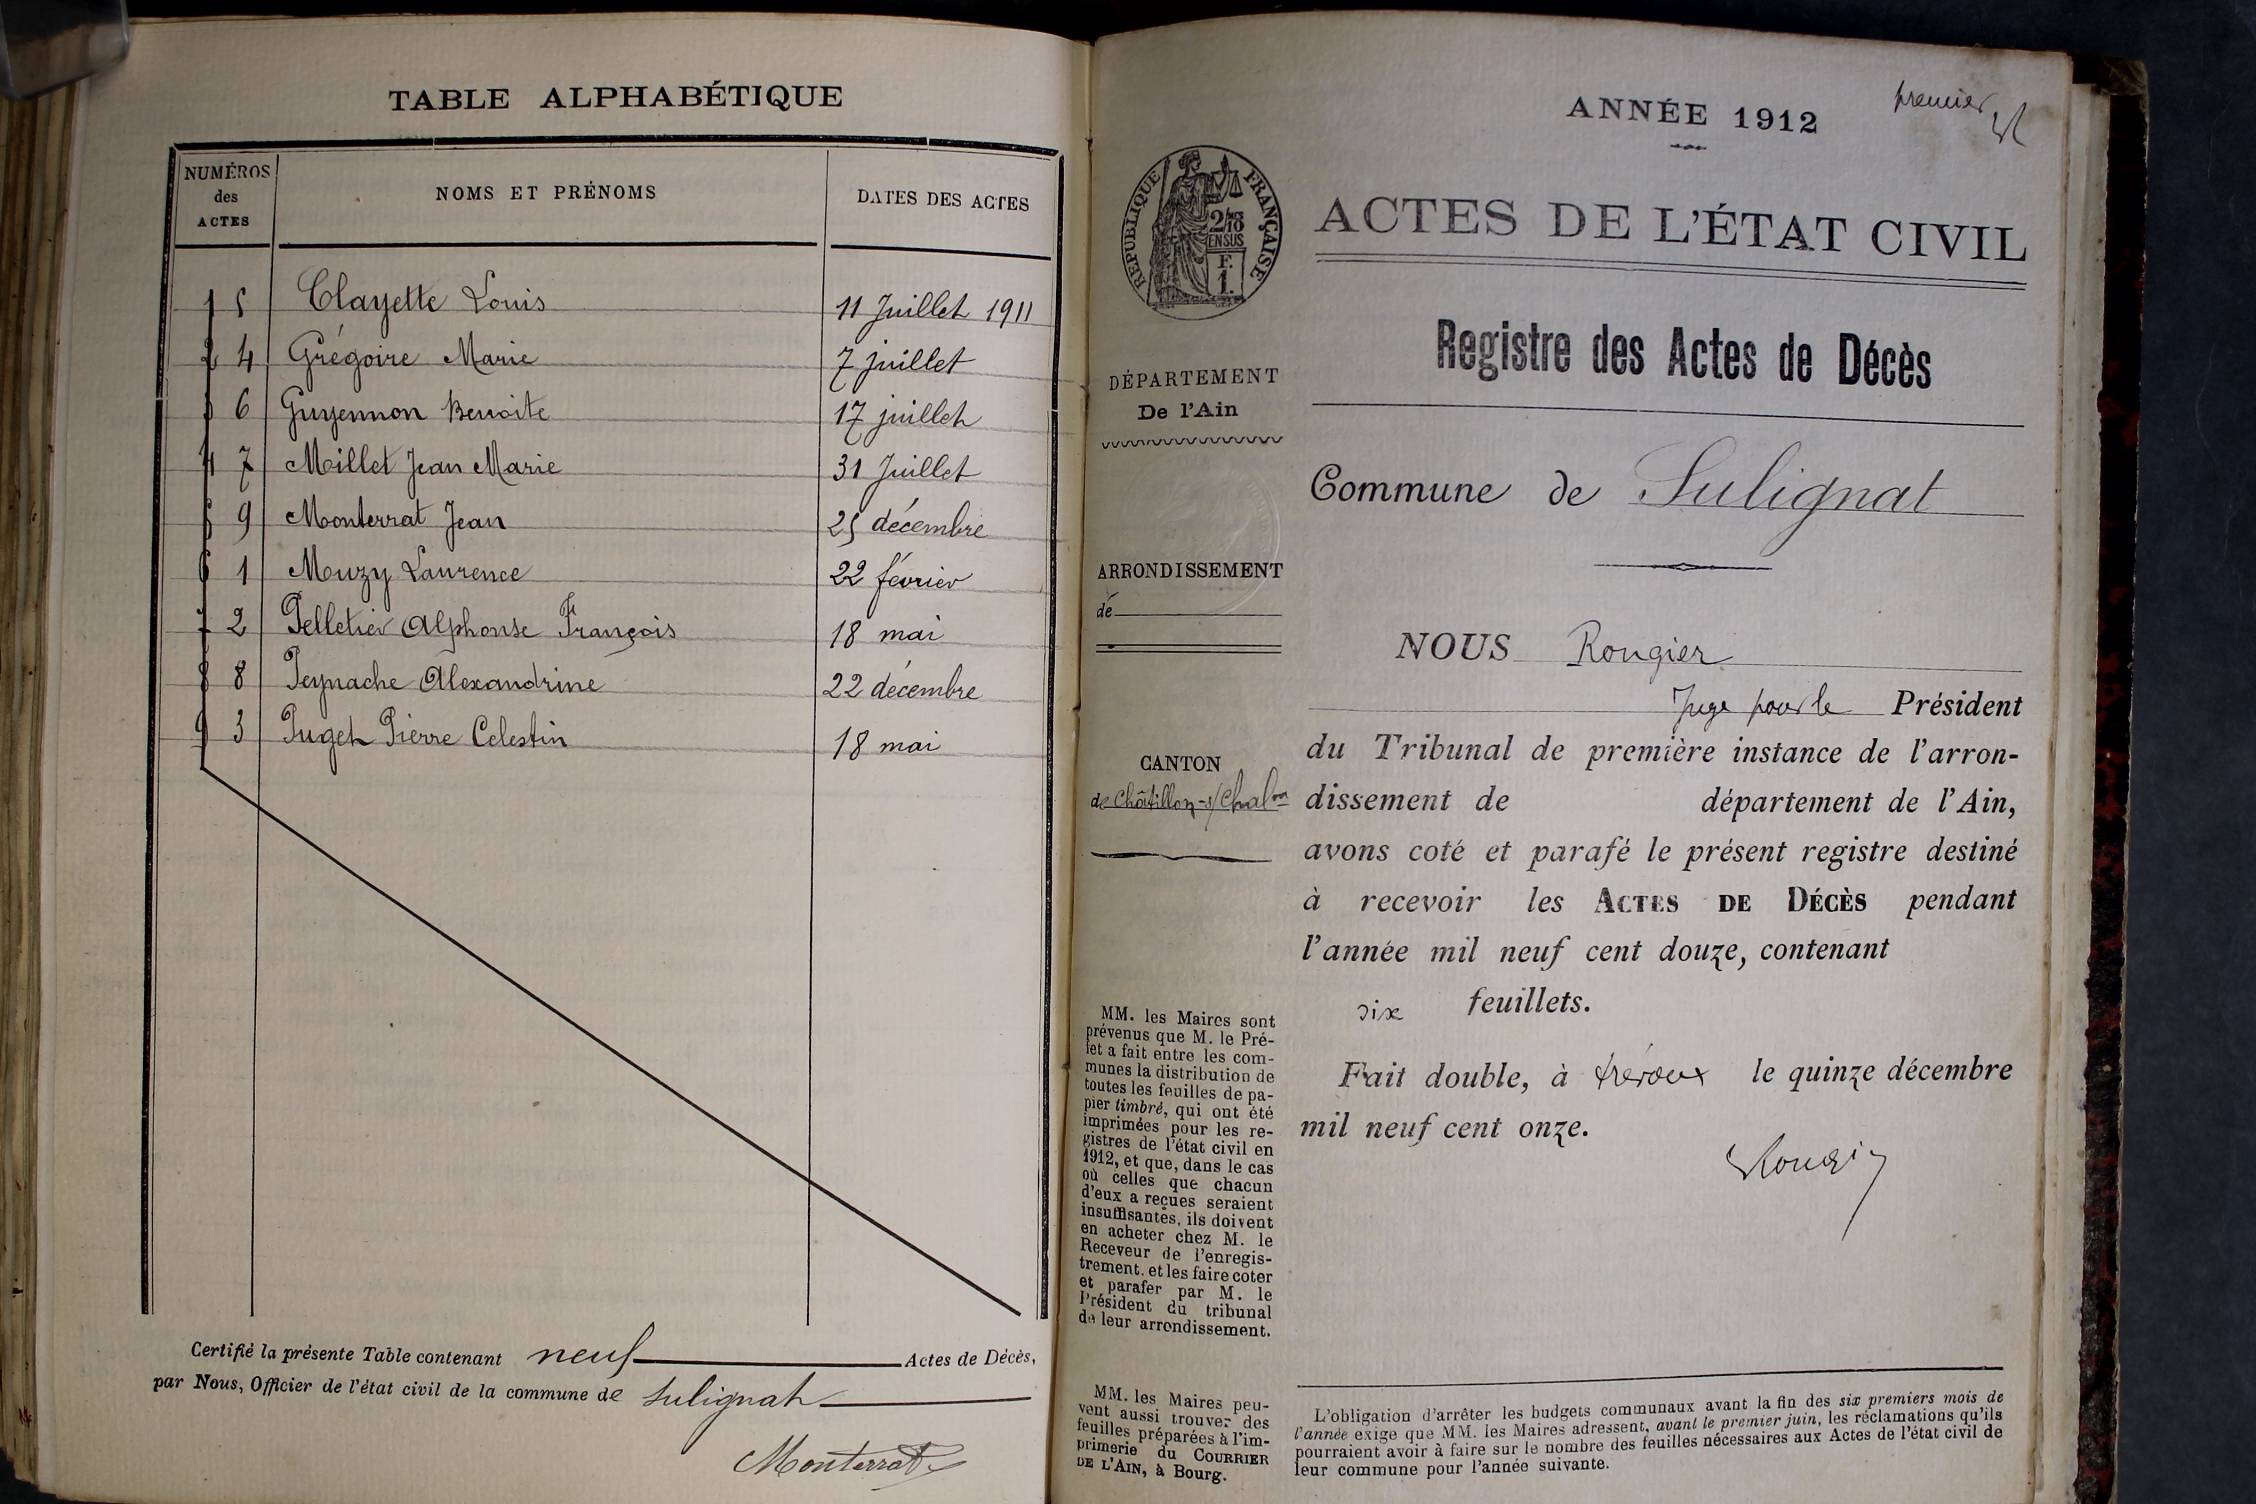 TABLE ALPHABÉTIQUE
NUMÉROS des ACTES
NOMS ET PRÉNOMS
DATES DES ACTES
1 5 Clayette Louis 11 Juillet 1911
2 4 Grégoire Marie 7 juillet
3 6 Guyennon Benoite 17 juillet
4 7 Millet Jean Marie 31 Juillet
5 9 Monterrat Jean 25 décembre
6 1 Muzy Laurence 22 février
7 2 Pelletier Alphonse François 18 mai
8 8 Peynache Alexandrine 22 décembre
9 3 Puget Pierre Celestin 18 mai
Certifié la présente Table contenant neuf Actes de Décès,
par Nous, Officier de l'état civil de la commune de Sulignat
Monterrat
premier
ANNÉE 1912
RÉPUBLIQUE FRANÇAISE
2/10
EN SUS
F.
1.
DÉPARTEMENT
De l'Ain
ARRONDISSEMENT
de
CANTON
de Châtillon-s/Chalon
MM. les Maires sont
prévenus que M. le Pré-
fet a fait entre les com-
munes la distribution de
toutes les feuilles de pa-
pier timbré, qui ont été
imprimées pour les re-
gistres de l'état civil en
1912, et que, dans le cas
où celles que chacun
d'eux a reçues seraient
insuffisantes, ils doivent
en acheter chez M. le
Receveur de l'enregis-
trement. et les faire coter
et parafer par M. le
Président du tribunal
de leur arrondissement.
MM. les Maires peu-
vent aussi trouver des
feuilles préparées à l'im-
primerie du COURRIER
DE L'AIN, à Bourg.
ACTES DE L'ÉTAT CIVIL
Registre des Actes de Décès
Commune de Sulignat
NOUS Rougier
Juge pour le Président
du Tribunal de première instance de l'arron-
dissement de département de l'Ain,
avons coté et parafé le présent registre destiné
à recevoir les ACTES DE DÉCÈS pendant
l'année mil neuf cent douze, contenant
six feuillets.
Fait double, à trévoux le quinze décembre
mil neuf cent onze.
Rougier
L'obligation d'arrêter les budgets communaux avant la fin des six premiers mois de
l'année exige que MM. les Maires adressent, avant le premier juin, les réclamations qu'ils
pourraient avoir à faire sur le nombre des feuilles nécessaires aux Actes de l'état civil de
leur commune pour l'année suivante.